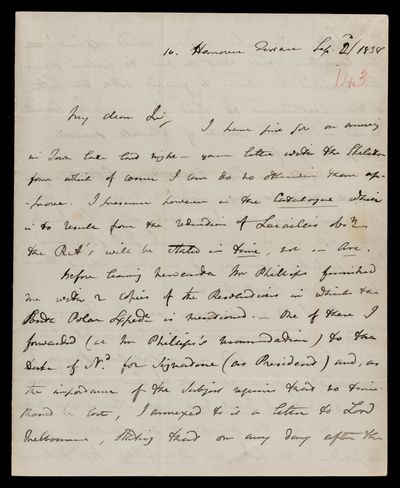 10. Hanover Terrace Sep. 2/1838
My dear Sir,
I have just on arriving
in Town late last night — your letter with the Skeleton
form which of course I can do no otherwise than ap-
-prove. I presume however in the Catalogue which
is to result from the reduction of Lacaille's obsns
the RA's will be stated in time, not in Arc.
Before leaving Newcastle Mr Phillips furnished
me with 2 copies of the Resolutions in which the
South Polar Expedn is mentioned. — One of these I
forwarded (at Mr Phillips's recommendation) to the
Duke of Nd for Signature (as President) and, as
the importance of the subject requires that no time
should be lost, I annexed to it a letter to Lord
Melbourne, stating that on any day after the